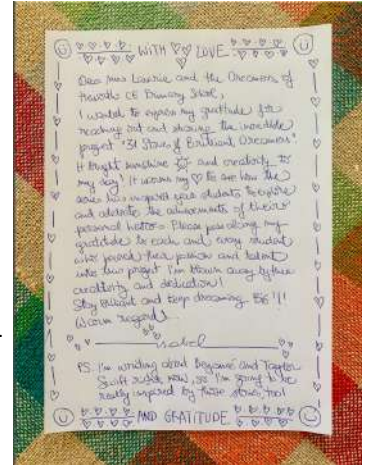 WITH LOVE
Dear Miss Laurie and the Dreamers of
Haworth CE Primary School,
I wanted to express my gratitude for
reaching out and sharing the incredible
project "31 Stories of Brilliant Dreamers".
It brought sunshine and creativity to
my day! It warms my to see how the
series has inspired your students to explore
and celebrate the achievements of their
personal heroes. Please pass along my
gratitude to each and every student
who poured their passion and talent
into this project. I'm blown away by their
creativity and dedication!
Stay brilliant and keep dreaming BIG!!!
Warm regards
Isabel
PS. I'm writing about Beyoncé and Taylor
Swift right now, so I'm going to be
really inspired by those stories too!
AND GRATITUDE